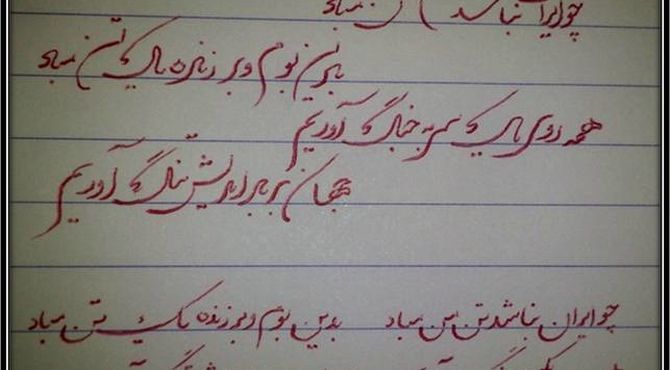 چو ایران نباشد تن من مباد
بدین بوم و بر زنده یک تن مباد
همه روی یکسر به جنگ آوریم
جهان بر بداندیش تنگ آوریم
چو ایران نباشد تن من مباد بدین بوم و بر زنده یک تن مباد